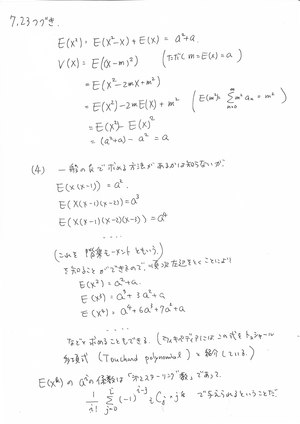 7.23つづき.
E(X²) = E(X²-X) + E(X) = a²+a.
V(X) = E((X-m)²) (ただし m=E(X)=a)
= E(X²-2mX+m²)
= E(X²)-2mE(X)+m² (E(m²)= Σ_{n=0}^{∞} m² aₙ = m²)
= E(X²)-E(X)²
= (a²+a)-a² = a
(4) 一般の
で求める方法があるかは知らないが.
E(X(X-1)) = a².
E(X(X-1)(X-2)) = a³
E(X(X-1)(X-2)(X-3)) = a⁴
‥‥
(これを 階乗モーメントともいう)
を知ることができるので, 順次左辺をとくことにより
E(X²) = a²+a.
E(X³) = a³+3a²+a
E(X⁴) = a⁴+6a³+7a²+a
‥‥
などと求めることもできる. (ウィキペディアにはこれをトゥシャール
多項式 (Touchard polynomial) と紹介している.)
の係数は「第2スターリング数」であって.
1/i! Σ_{j=0}^{i} (-1)^{i-j} ᵢCⱼ · jᵏ で与えられるということだ